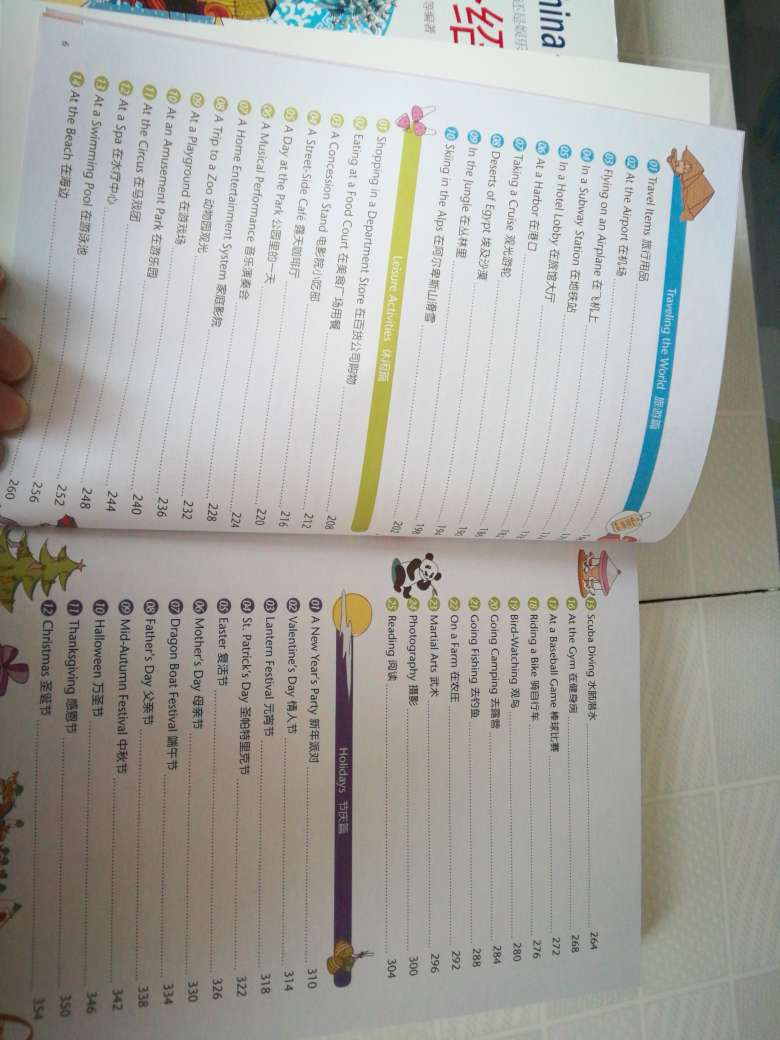 hina
还是娱乐
经
等编著
Traveling the World 旅游篇
01 Travel Items 旅行用品
02 At the Airport 在机场
03 Flying on an Airplane 在飞机上
04 In a Subway Station 在地铁站
05 In a Hotel Lobby 在旅馆大厅
06 At a Harbor 在港口
07 Taking a Cruise 观光游轮
08 Deserts of Egypt 埃及沙漠
09 In the Jungle 在丛林里 198
10 Skiing in the Alps 在阿尔卑斯山滑雪 202
Leisure Activities 休闲篇
01 Shopping in a Department Store 在百货公司购物 208
02 Eating at a Food Court 在美食广场用餐 212
03 A Concession Stand 电影院小吃部 216
04 A Street-Side Café 露天咖啡厅 220
05 A Day at the Park 公园里的一天 224
06 A Musical Performance 音乐演奏会 228
07 A Home Entertainment System 家庭影院 232
08 A Trip to a Zoo 动物园观光 236
09 At a Playground 在游戏场 240
10 At an Amusement Park 在游乐园 244
11 At the Circus 在马戏团 248
12 At a Spa 在水疗中心 252
13 At a Swimming Pool 在游泳池 256
14 At the Beach 在海边 260
6
15 Scuba Diving 水肺潜水 264
16 At the Gym 在健身房 268
17 At a Baseball Game 棒球比赛 272
18 Riding a Bike 骑自行车 276
19 Bird-Watching 观鸟 280
20 Going Camping 去露营 284
21 Going Fishing 去钓鱼 288
22 On a Farm 在农庄 292
23 Martial Arts 武术 296
24 Photography 摄影 300
25 Reading 阅读 304
Holidays 节庆篇
01 A New Year's Party 新年派对 310
02 Valentine's Day 情人节 314
03 Lantern Festival 元宵节 318
04 St. Patrick's Day 圣帕特里克节 322
05 Easter 复活节 326
06 Mother's Day 母亲节 330
07 Dragon Boat Festival 端午节 334
08 Father's Day 父亲节 338
09 Mid-Autumn Festival 中秋节 342
10 Halloween 万圣节 346
11 Thanksgiving 感恩节 350
12 Christmas 圣诞节 354